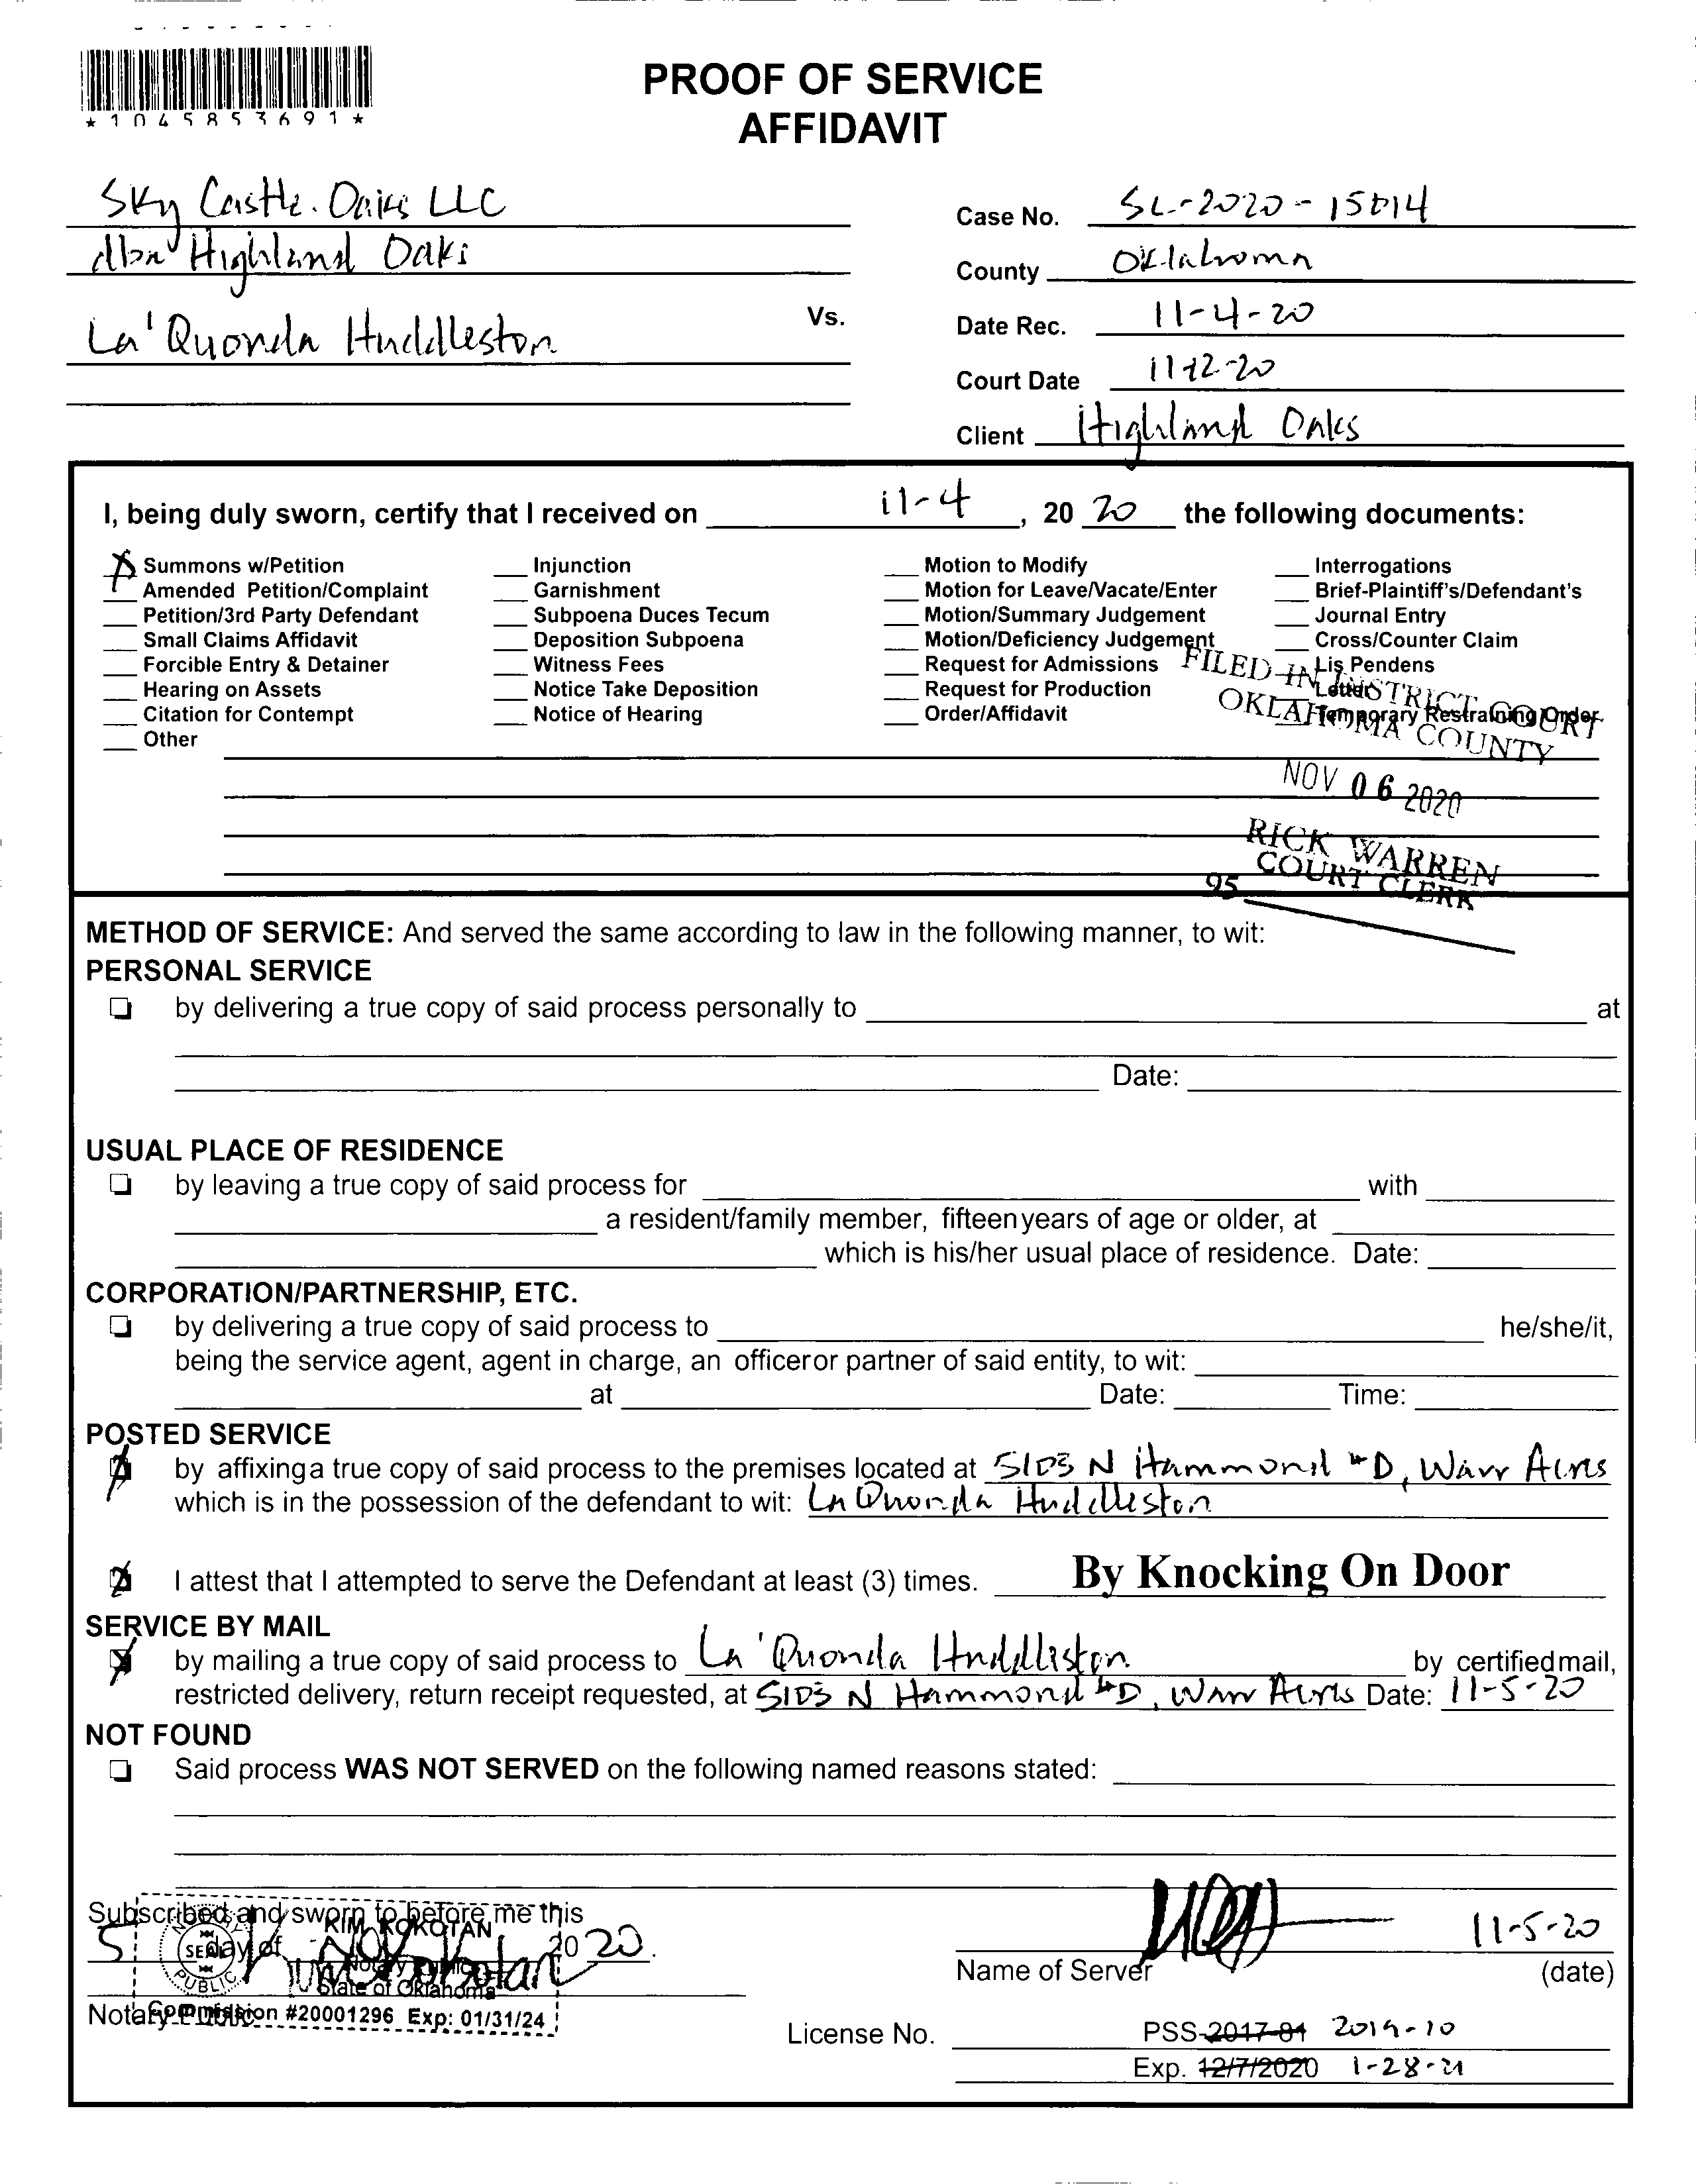 *1045853691*
PROOF OF SERVICE
AFFIDAVIT
Sky Castle Oaks LLC
dba Highland Oaks
Vs.
La'Quonda Huddleston
Case No. SC-2020-15014
County Oklahoma
Date Rec. 11-4-20
Court Date 11-12-20
Client Highland Oaks
I, being duly sworn, certify that I received on 11-4, 20 20 the following documents:
Summons w/Petition
Amended Petition/Complaint
Petition/3rd Party Defendant
Small Claims Affidavit
Forcible Entry & Detainer
Hearing on Assets
Citation for Contempt
Other
Injunction
Garnishment
Subpoena Duces Tecum
Deposition Subpoena
Witness Fees
Notice Take Deposition
Notice of Hearing
Motion to Modify
Motion for Leave/Vacate/Enter
Motion/Summary Judgement
Motion/Deficiency Judgement
Request for Admissions
Request for Production
Order/Affidavit
Interrogations
Brief-Plaintiff's/Defendant's
Journal Entry
Cross/Counter Claim
Lis Pendens
Letter
Temporary Restraining Order
FILED IN DISTRICT COURT
OKLAHOMA COUNTY
NOV 06 2020
RICK WARREN
COURT CLERK
95
METHOD OF SERVICE: And served the same according to law in the following manner, to wit:
PERSONAL SERVICE
by delivering a true copy of said process personally to at
Date:
USUAL PLACE OF RESIDENCE
by leaving a true copy of said process for with
a resident/family member, fifteen years of age or older, at
which is his/her usual place of residence. Date:
CORPORATION/PARTNERSHIP, ETC.
by delivering a true copy of said process to he/she/it,
being the service agent, agent in charge, an officer or partner of said entity, to wit:
at Date: Time:
POSTED SERVICE
by affixing a true copy of said process to the premises located at 5103 N Hammond #D, Warr Acres
which is in the possession of the defendant to wit: La Quonda Huddleston
I attest that I attempted to serve the Defendant at least (3) times. By Knocking On Door
SERVICE BY MAIL
by mailing a true copy of said process to La'Quonda Huddleston by certified mail,
restricted delivery, return receipt requested, at 5103 N Hammond #D, Warr Acres Date: 11-5-20
NOT FOUND
Said process WAS NOT SERVED on the following named reasons stated:
Subscribed and sworn to before me this
5 day of Nov 20 20.
Notary Public
KIM KOKOTAN
Notary Public
State of Oklahoma
Commission #20001296 Exp: 01/31/24
NOTARY PUBLIC SEAL
Kim Kokotan
11-5-20
Name of Server (date)
License No. PSS-2017-81 2019-10
Exp. 12/7/2020 1-28-21